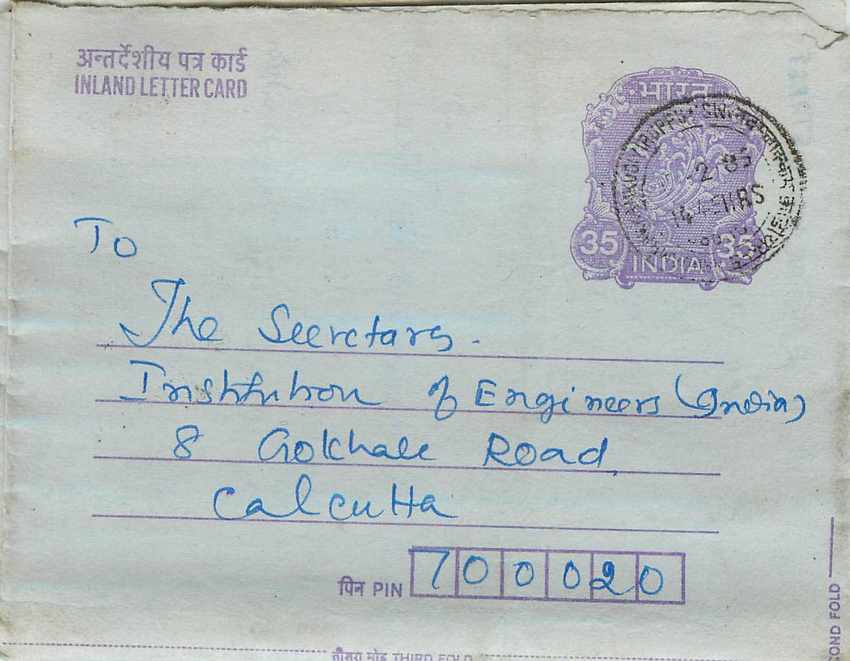 अन्तर्देशीय पत्र कार्ड
INLAND LETTER CARD
भारत
2 85
14 HRS
35 35
INDIA
To
The Secretary.
Institution of Engineers (India)
8 Gokhale Road,
Calcutta
पिन PIN 700020
तीसरा मोड़ THIRD FOLD
OND FOLD